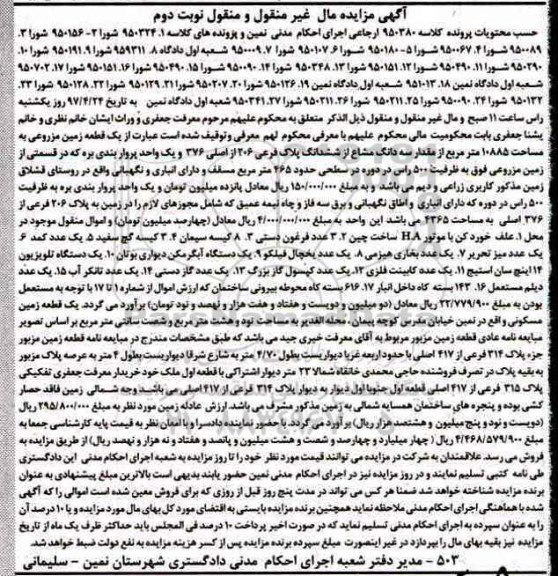 آگهی مزایده مال غیر منقول و منقول نوبت دوم
حسب محتویات پرونده کلاسه ۹۵۰۳۸۰ ارجاعی اجرای احکام مدنی نمین و پرونده های کلاسه ۱. ۹۵۰۳۲۴ شورا ۲- ۹۵۰۱۵۶ شورا ۳.
۹۵۰۰۸۹ شورا ۴. ۹۵۰۰۶۷ شورا ۵- ۹۵۰۱۸۰ شورا ۶. ۹۵۰۱۰۷ شورا ۷. ۹۵۰۰۰۹ شعبه اول دادگاه ۸. ۹۵۹۳۱۱ شورا ۹. ۹۵۰۱۹۱ شورا ۱۰.
۹۵۰۲۹۰ شورا ۱۱. ۹۵۰۴۹۰ شورا ۱۲. ۹۵۰۱۵۱ شورا ۱۳. ۹۵۰۳۴۸ شورا ۱۴. ۹۵۰۰۹۰ شورا ۱۵. ۹۵۰۴۹۰ شورا ۱۶. ۹۵۰۱۵۱ شورا ۱۷. ۹۵۰۷۰۲
شعبه اول دادگاه نمین ۱۸. ۹۵۰۱۳ شعبه اول دادگاه نمین ۱۹. ۹۵۰۱۲۶ شورا ۲۰. ۹۵۰۲۰۷ شورا ۲۱. ۹۵۰۱۲۹ شورا ۲۲. ۹۵۰۱۲۸ شورا ۲۳.
۹۵۰۱۳۲ شورا ۲۴. ۹۵۰۰۹۰ شورا ۲۵. ۹۵۰۲۱۱ شورا ۲۶. ۹۵۰۳۱۱ شورا ۲۷. ۹۵۰۳۴۱ شعبه اول دادگاه نمین به تاریخ ۹۷/۴/۲۴ روز یکشنبه
راس ساعت ۱۱ صبح و مال غیر منقول و منقول ذیل الذکر متعلق به محکوم علیهم مرحوم معرفت جعفری و وراث ایشان خانم نظری و خانم
یشنا جعفری بابت محکومیت مالی محکوم علیهم با معرفی محکوم لهم معرفی و توقیف شده است عبارت از یک قطعه زمین مزروعی به
مساحت ۱۰۸۸۵ متر مربع از مقدار سه دانگ مشاع از ششدانگ پلاک فرعی ۲۰۶ از اصلی ۳۷۶ و یک واحد پروار بندی بره که در قسمتی از
زمین مزروعی فوق به ظرفیت ۵۰۰ راس در دوره در سطحی حدود ۲۶۵ متر مربع مسقف و دارای انباری و نگهبانی واقع در روستای قشلاق
زمین مذکور کاربری زراعی و دیم می باشد و به مبلغ ۱۵۰/۰۰۰/۰۰۰ ریال معادل پانزده میلیون تومان و یک واحد پروار بندی بره به ظرفیت
۵۰۰ راس در دوره که دارای انباری و اطاق نگهبانی و برق سه فاز و چاه نیمه عمیق که شامل مجوزهای لازم را در زمین به پلاک ۲۰۶ فرعی از
۳۷۶ اصلی به مساحت ۴۳۶۵ می باشد این واحد به مبلغ ۴/۰۰۰/۰۰۰/۰۰۰ ریال معادل (چهارصد میلیون تومان) و اموال منقول موجود در
محل ۱. علف خورد کن با موتور HA ساخت چین ۲. ۳ عدد فرغون دستی ۳. ۶ کیسه سیمان ۴. ۳ کیسه گچ سفید ۵. یک عدد کمد ۶.
یک عدد میز تحریر ۷. یک عدد بخاری هیزمی ۸. یک عدد یخچال فیلکو ۹. یک دستگاه آبگرمکن دیواری بوتان ۱۰. یک دستگاه تلویزیون
۱۴ اینچ سان استیج ۱۱. یک عدد کابینت فلزی ۱۲. یک عدد کپسول گاز بزرگ ۱۳. یک عدد گاز دستی ۱۴. یک عدد تانکر آب ۱۵. یک عدد
دیلم مستعمل ۱۶. ۱۴۳ بسته کاه داخل انبار ۱۷. ۶۱۶ بسته کاه محوطه بیرونی ساختمان که ارزش اموال از شماره ۱ تا ۱۷ با توجه به مستعمل
بودن به مبلغ ۲۲/۷۷۹/۹۰۰ ریال معادل (دو میلیون و دویست و هفتاد و هفت هزار و نهصد و نود تومان) برآورد می گردد. یک قطعه زمین
مسکونی واقع در نمین خیابان مدرس کوچه پیمان . ضلع الغدیر به مساحت نود و هشت متر مربع و شصت سانتی متر مربع بر اساس تصویر
مبایعه نامه عادی قطعه زمین مزبور مربوط به آقای معرفت خیری جید می باشد که طبق مشخصات مندرج در مبایعه نامه قطعه زمین مزبور
جزء پلاک ۳۱۴ فرعی از ۴۱۷ اصلی با حدود اربعه غربا دیواریست بطول ۴/۷۰ متر به شارع شرقا دیواریست بطول ۴ متر به عرصه پلاک مزبور
به بقیه پلاک در تصرف فروشنده حاجی محمدی خانقاه شمالا ۲۳ متر دیوار اشتراکی با قطعه اول ملک خود خریدار معرفت جعفری تفکیکی
پلاک ۳۱۵ فرعی از ۴۱۷ اصلی قطعه اول جنوبا اول دیوار به دیوار پلاک ۳۱۴ فرعی از ۴۱۷ اصلی می باشد. وجه شمالی زمین فاقد حصار
کشی بوده و پنجره های ساختمان همسایه شمالی به زمین مذکور مشرف می باشد. ارزش عادله زمین مورد نظر به مبلغ ۲۹۵/۸۰۰/۰۰۰ ریال
(دویست و نود و پنج میلیون و هشتصد هزار ریال) بر آورد می گردد. با حضور نماینده دادسرا و با اتمان نظر به قیمت پایه کارشناسی جمعا به
مبلغ ۴/۴۶۸/۵۷۹/۹۰۰ ریال ( چهار میلیارد و چهارصد و شصت و هشت میلیون و پانصد و هفتاد و نه هزار و نهصد ریال) از طریق مزایده به
فروش می رسد. علاقمندان به شرکت در مزایده می توانند قیمت مورد نظر خود را تا روز مزایده به شعبه اجرای احکام مدنی این دادگستری
طی نامه کتبی تسلیم نمایند و در روز مزایده نیز در اجرای احکام مدنی نمین حضور یابند بدیهی است بالاترین مبلغ پیشنهادی به عنوان
برنده مزایده شناخته خواهد شد ضمنا هر کس می تواند در مدت پنج روز قبل از روزی که برای فروش معین شده است اموالی را که آگهی
شده با هماهنگی اجرای احکام مدنی ملاحظه نماید همچنین برنده مزایده بایستی به اقتضای مورد کل بهای مال مورد مزایده و یا ۱۰ درصد آن
را به عنوان سپرده به اجرای احکام مدنی تسلیم نماید که در صورت اخیر پرداخت ۱۰ درصد فی المجلس باید حداکثر ظرف یک ماه از تاریخ
مزایده نیز بقیه بهای مال را بپردازد در غیر اینصورت مبلغ سپرده برنده مزایده پس از کسر هزینه مزایده به نفع دولت ضبط خواهد شد.
۵۰۳ - مدیر دفتر شعبه اجرای احکام مدنی دادگستری شهرستان نمین - سلیمانی